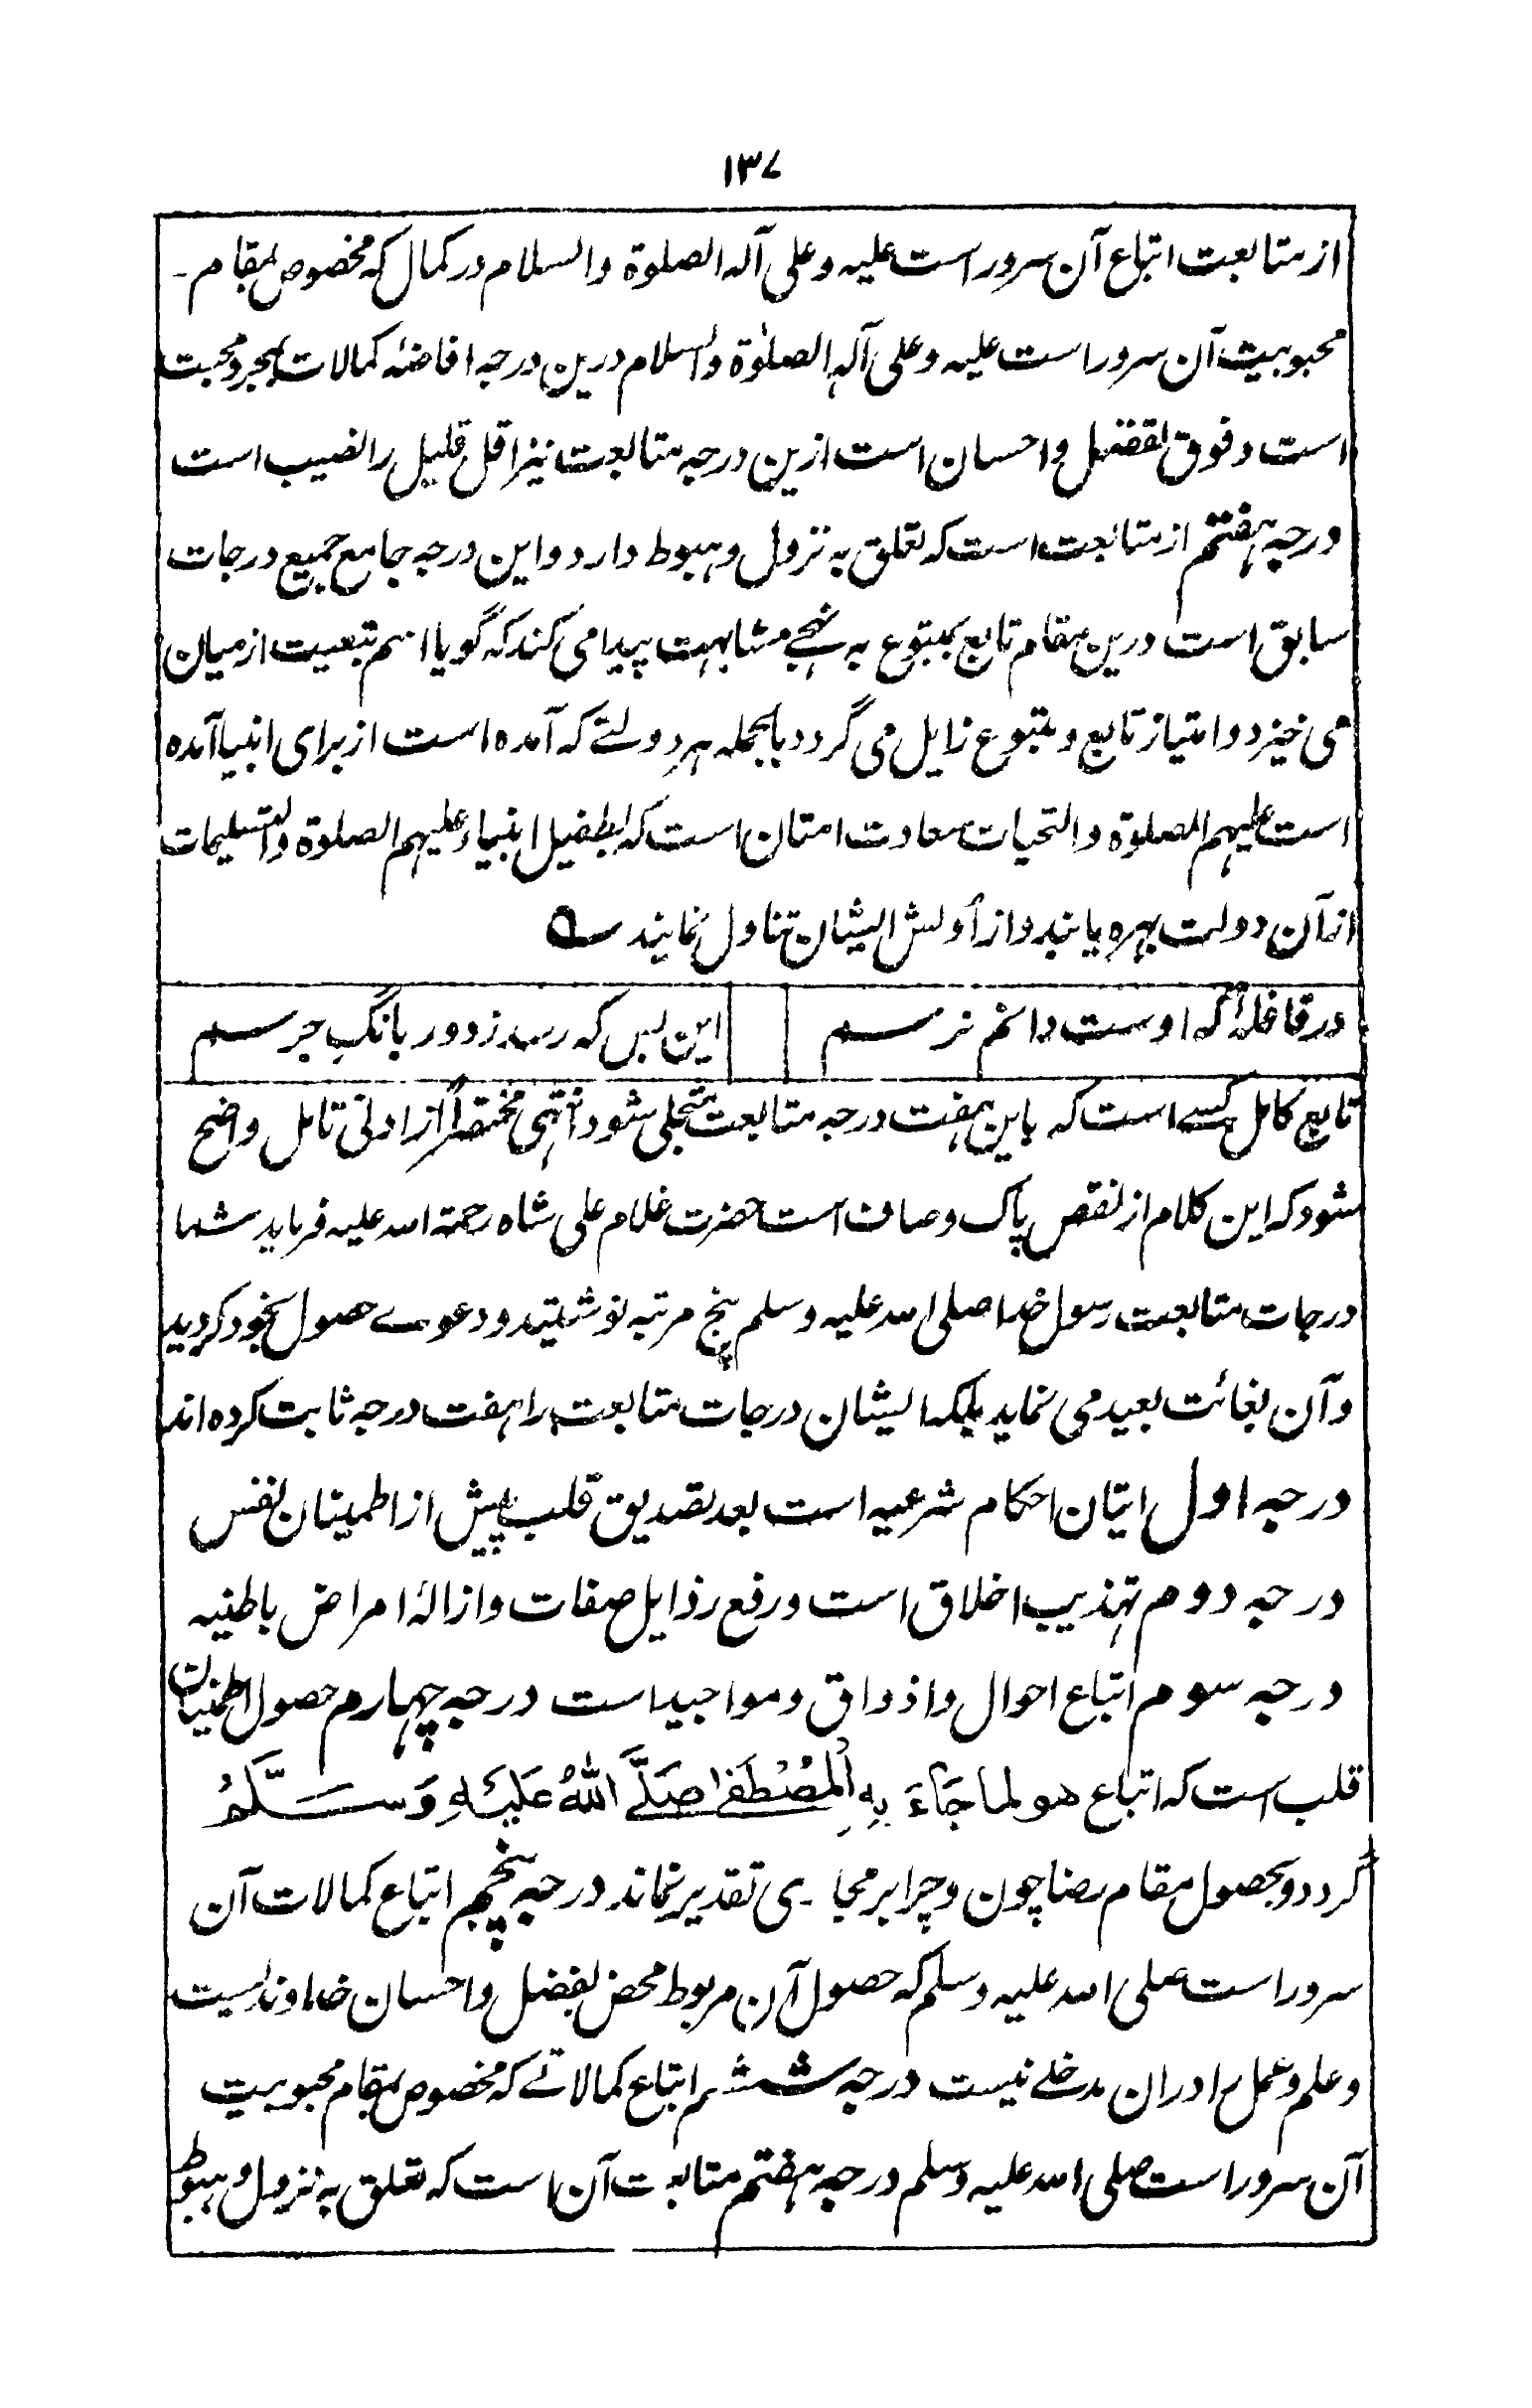 ۱۳۷
از متابعت اتباع آن سرور است علیه و علی آله الصلوة والسلام در کمال که مخصوص بمقام ـ
محبوبیت آن سرور است علیه و علی آله الصلوٰة والسلام درین درجه افاضهٔ کمالات بمجرد محبت
است و فوق تفضل و احسان است ازین درجه متابعت نیز اقل قلیل را نصیب است
درجه هفتم از متابعت است که تعلق به نزول و هبوط دارد و این درجه جامع جمیع درجات
سابق است درین مقام تابع بمتبوع به نهجے مشابهت پیدا می کند که گویا اسم تبعیت از میان
می خیزد و امتیاز تابع و متبوع زایل می گردد بالجمله هر دولتے که آمده است از برای انبیا آمده
است علیهم الصلوة والتحیات سعادت امتان است که بطفیل انبیاء علیهم الصلوة والتسلیمات
از آن دولت بهره یابند و از اولش ایشان تناول نمایند ؎
در قافلهٔ که اوست دانم نرسم این بس که رسد ز دور بانگ جرسم
تابع کامل کسے است که باین هفت درجه متابعت متجلی شود انتهی مختصراً از ادنی تامل واضح
شود که این کلام از نقص پاک و صاف است حضرت غلام علی شاه رحمة الله علیه فرماید شما
درجات متابعت رسول خدا صلی الله علیه وسلم پنج مرتبه نوشتید و دعوے حصول بخود کردید
و آن بغائت بعید می نماید بلکه ایشان درجات متابعت را هفت درجه ثابت کرده اند
درجه اول اتیان احکام شرعیه است بعد تصدیق قلب پیش از اطمینان نفس
درجه دوم تهذیب اخلاق است و رفع رذایل صفات و ازالهٔ امراض باطنیه
درجه سوم اتباع احوال و اذواق و مواجید است درجه چهارم حصول اطمینان
قلب است که اتباع هو لما جَاءَ بِهِ الْمُصْطَفٰا صَلَّى اللهُ عَلَيْهِ وَسَلَّمُ
گردد و بحصول مقام رضا چون و چرا بر مجاری تقدیر نماند درجه پنجم اتباع کمالات آن
سرور است صلی الله علیه وسلم که حصول آن مربوط محض بفضل و احسان خداوندیست
و علم و عمل را دران مدخلے نیست درجه ششم اتباع کمالاتے که مخصوص بمقام محبوبیت
آن سرور است صلی الله علیه وسلم درجه هفتم متابعت آن است که تعلق به نزول و هبوط